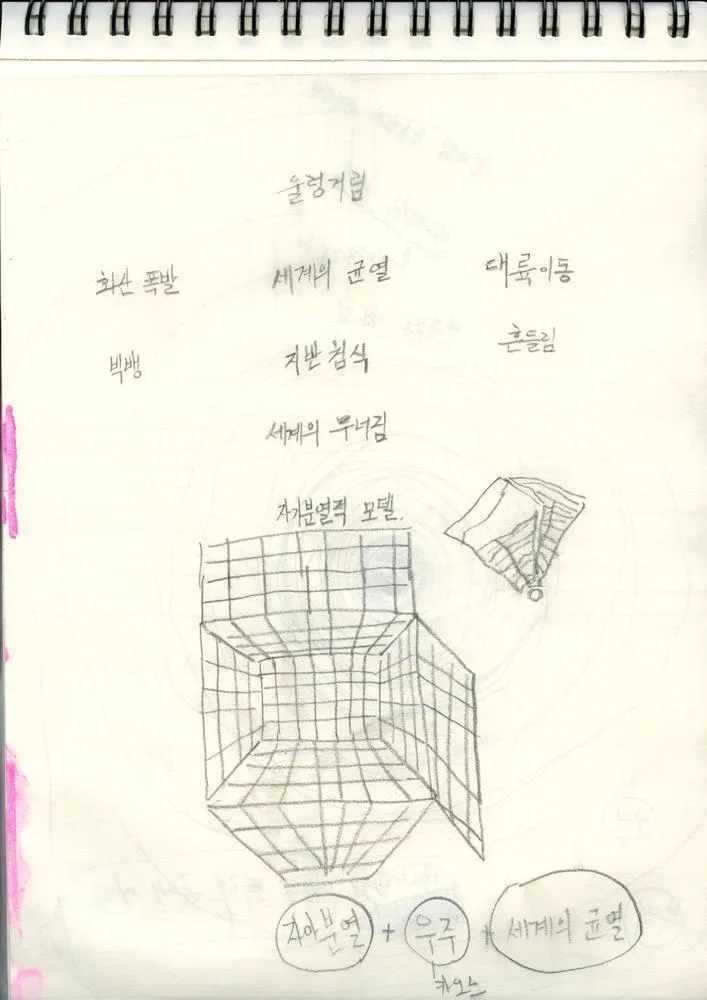 울렁거림
화산 폭발
세계의 균열
대륙이동
흔들림
빅뱅
지반 침식
세계의 무너짐
자기분열적 모델.
자아분열 + 우주 + 세계의 균열
카오스